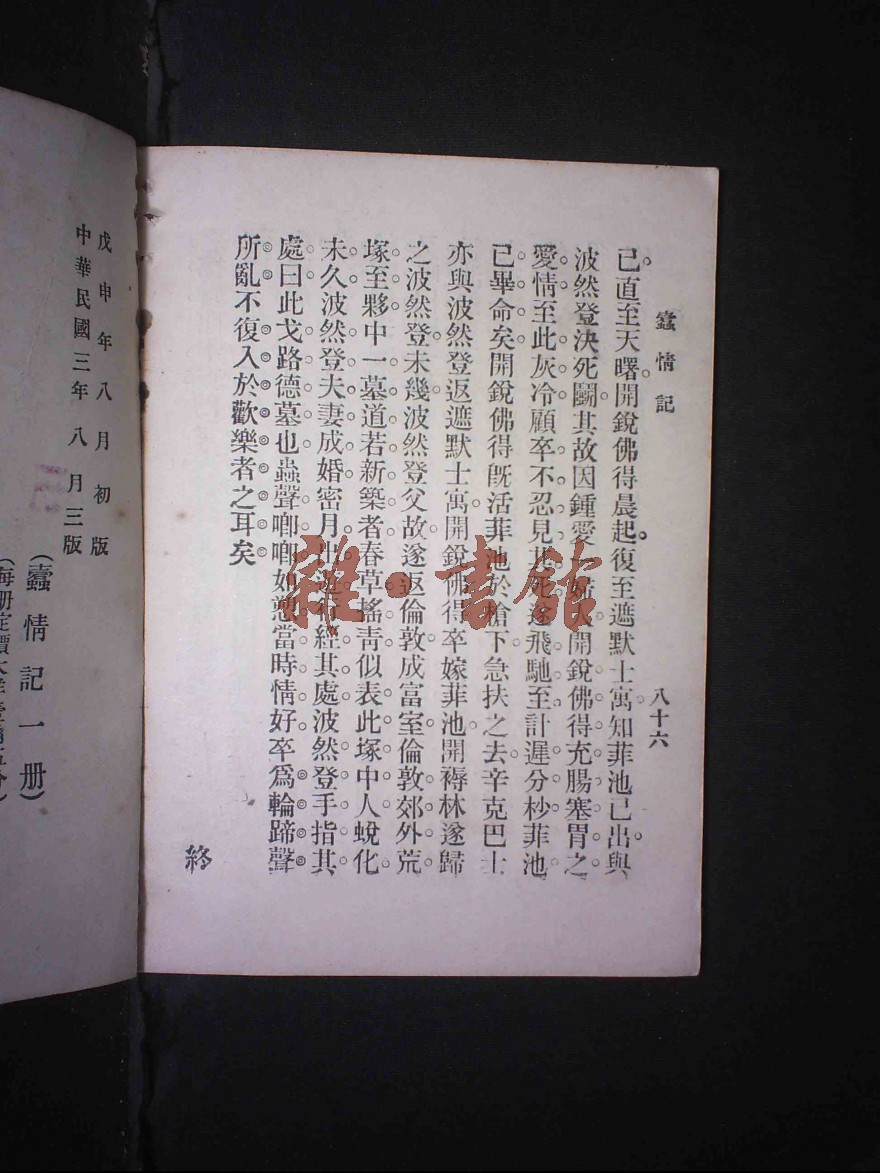 蠧情記
八十六
己直至天曙開銳佛得晨起復至遮默士寓知菲池已出與
波然登決死鬭其故因鍾愛一婦人開銳佛得充腸塞胃之
愛情至此灰冷顧卒不忍見其死遂飛馳至計遲分杪菲池
已畢命矣開銳佛得旣活菲池於槍下急扶之去辛克巴士
亦與波然登返遮默士寓開銳佛得卒嫁菲池開褥林遂歸
之波然登未幾波然登父故遂返倫敦成富室倫敦郊外荒
塚至夥中一墓道若新築者春草搖靑似表此塚中人蛻化
未久波然登夫妻成婚密月出遊行經其處波然登手指其
處曰此戈路德墓也蟲聲喞喞如愬當時情好卒爲輪蹄聲
所亂不復入於歡樂者之耳矣
終
戊申年八月初版
中華民國三年八月三版
(蠧情記一册)
(每册定價大洋壹角五分)
雜·書館